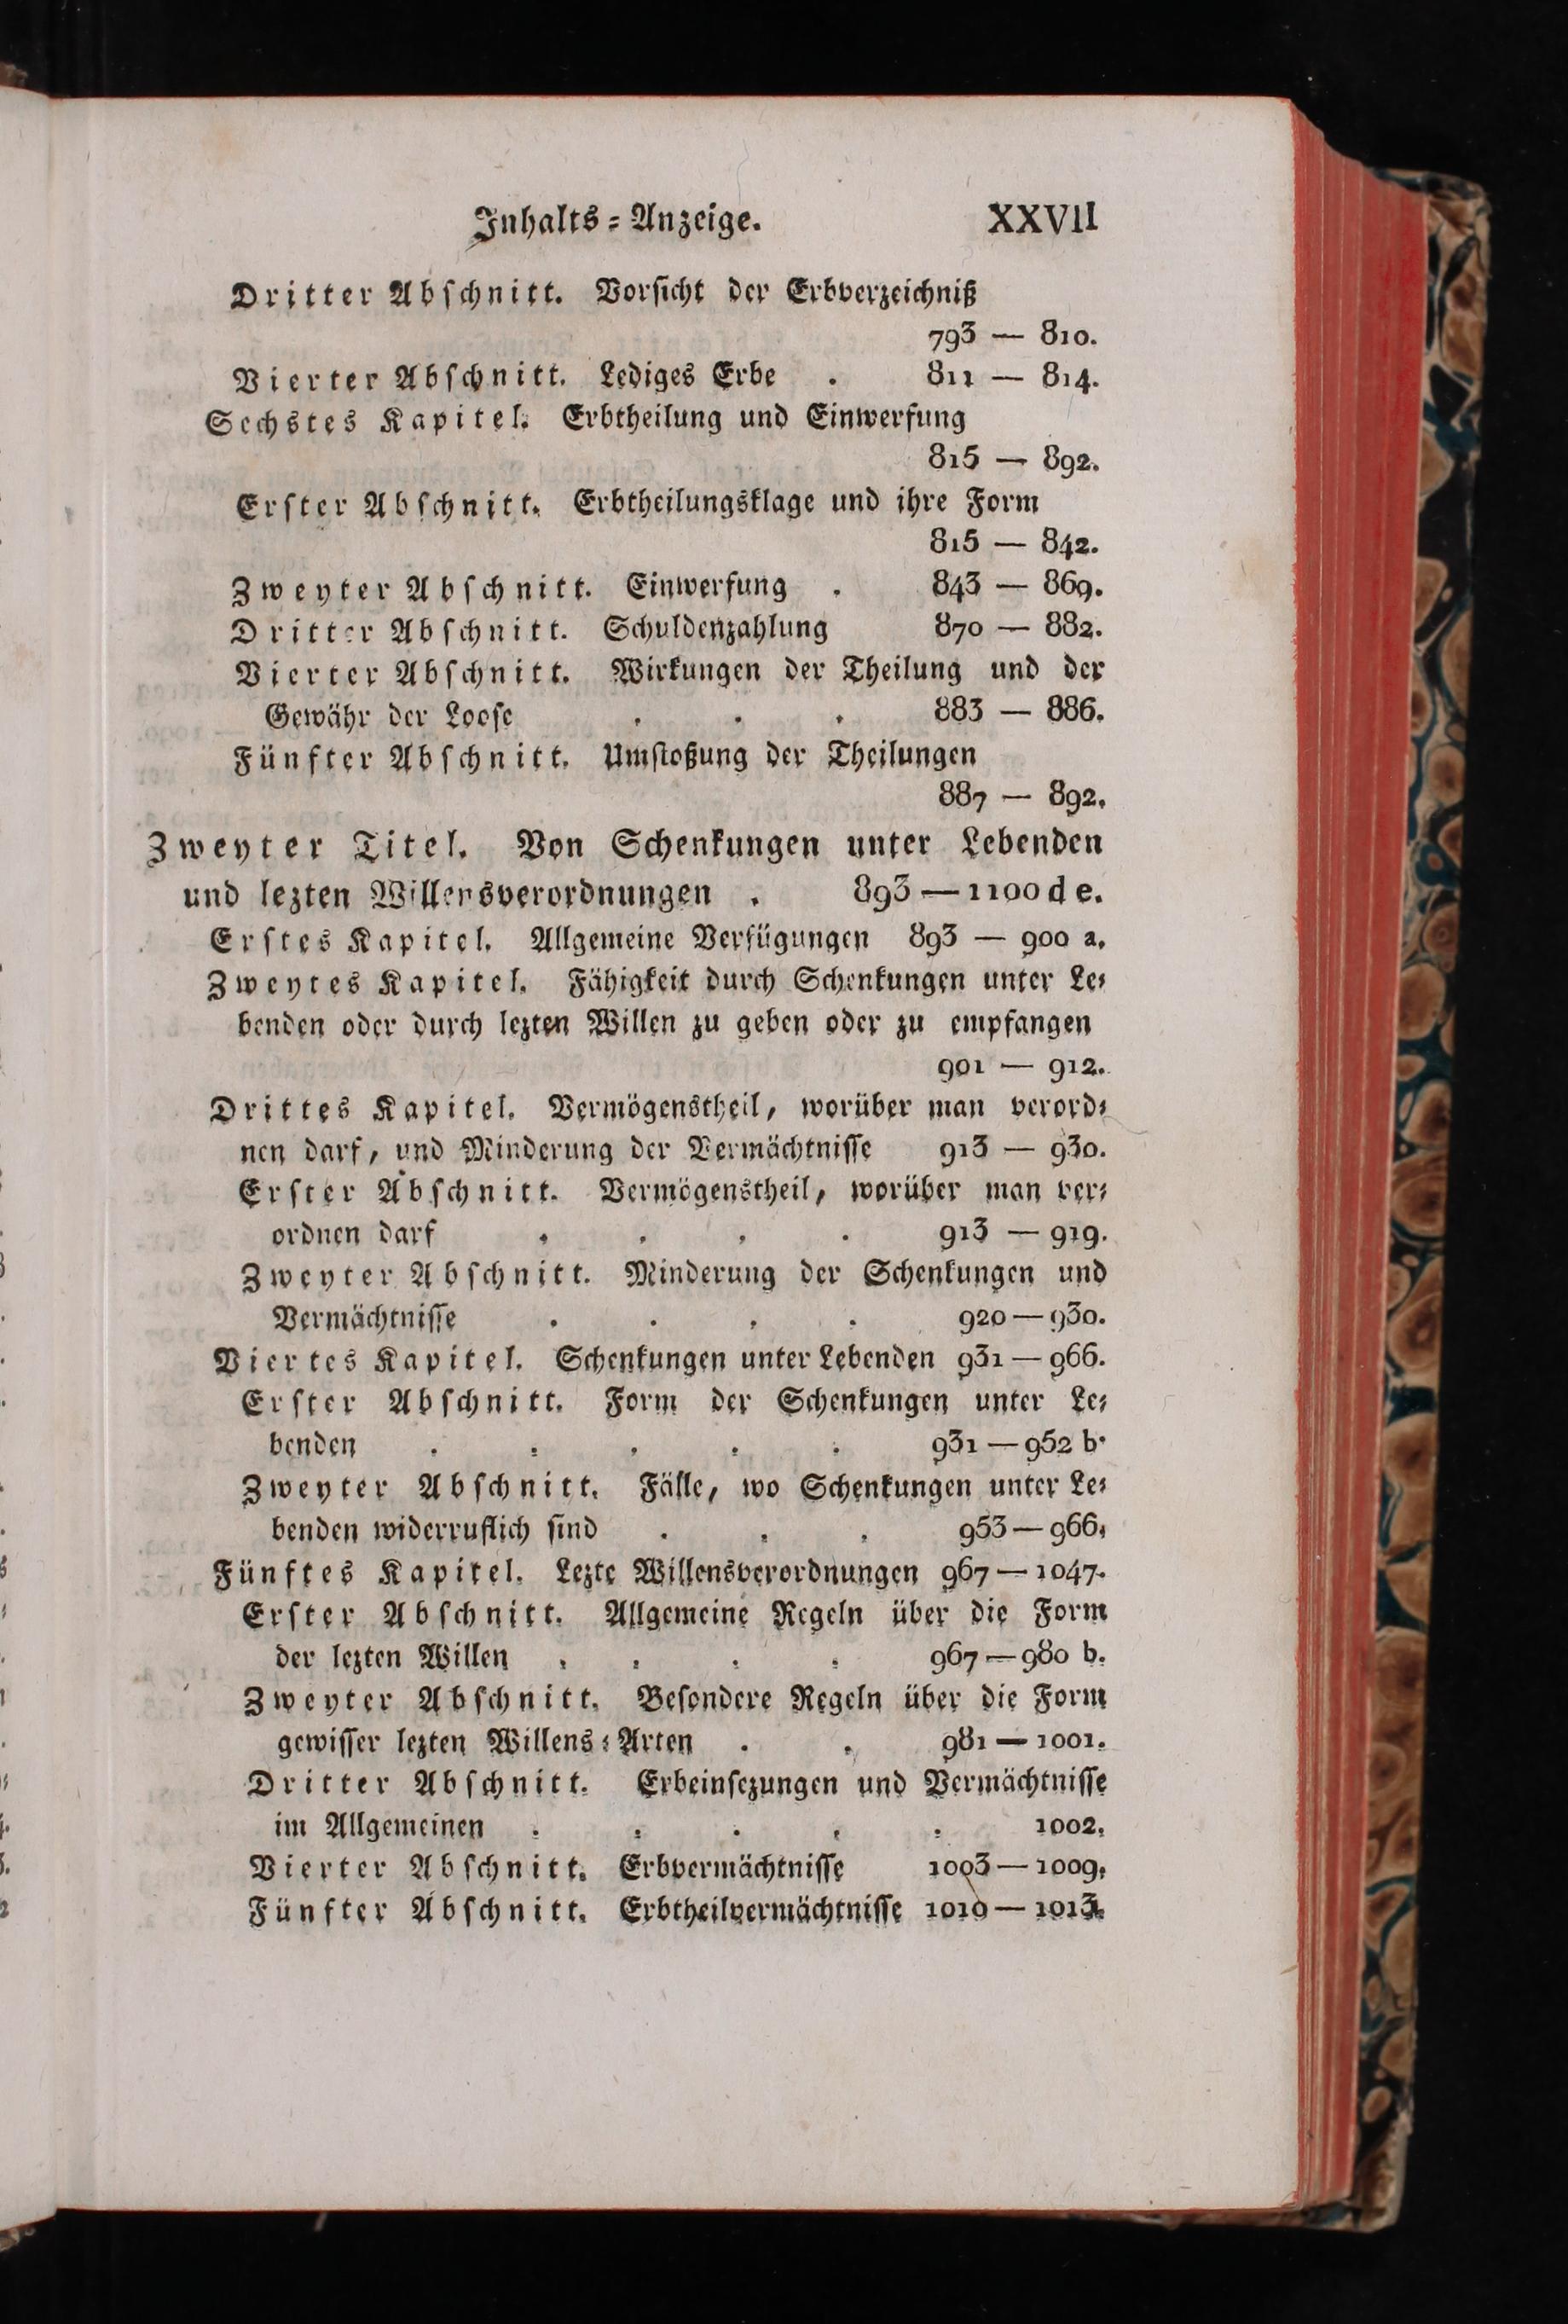 Inhalts-Anzeige. XXVII
Dritter Abschnitt. Vorsicht der Erbverzeichniß
793 — 810.
Vierter Abschnitt. Lediges Erbe . 811 — 814.
Sechstes Kapitel. Erbtheilung und Einwerfung
815 — 892.
Erster Abschnitt. Erbtheilungsklage und ihre Form
815 — 842.
Zweyter Abschnitt. Einwerfung . 843 — 869.
Dritter Abschnitt. Schuldenzahlung 870 — 882.
Vierter Abschnitt. Wirkungen der Theilung und der
Gewähr der Loose . . . 883 — 886.
Fünfter Abschnitt. Umstoßung der Theilungen
887 — 892.
Zweyter Titel. Von Schenkungen unter Lebenden
und lezten Willensverordnungen . 893 — 1100 d e.
Erstes Kapitel. Allgemeine Verfügungen 893 — 900 a.
Zweytes Kapitel. Fähigkeit durch Schenkungen unter Le-
benden oder durch lezten Willen zu geben oder zu empfangen
901 — 912.
Drittes Kapitel. Vermögenstheil, worüber man verord-
nen darf, und Minderung der Vermächtnisse 913 — 930.
Erster Abschnitt. Vermögenstheil, worüber man ver-
ordnen darf . . . . 913 — 919.
Zweyter Abschnitt. Minderung der Schenkungen und
Vermächtnisse . . . . 920 — 930.
Viertes Kapitel. Schenkungen unter Lebenden 931 — 966.
Erster Abschnitt. Form der Schenkungen unter Le-
benden . . . . . 931 — 952 b.
Zweyter Abschnitt. Fälle, wo Schenkungen unter Le-
benden widerruflich sind . . . 953 — 966.
Fünftes Kapitel. Lezte Willensverordnungen 967 — 1047.
Erster Abschnitt. Allgemeine Regeln über die Form
der lezten Willen . . . . 967 — 980 b.
Zweyter Abschnitt. Besondere Regeln über die Form
gewisser lezten Willens-Arten . . 981 — 1001.
Dritter Abschnitt. Erbeinsezungen und Vermächtnisse
im Allgemeinen . . . . . 1002.
Vierter Abschnitt. Erbvermächtnisse 1003 — 1009.
Fünfter Abschnitt. Erbtheilvermächtnisse 1010 — 1013.